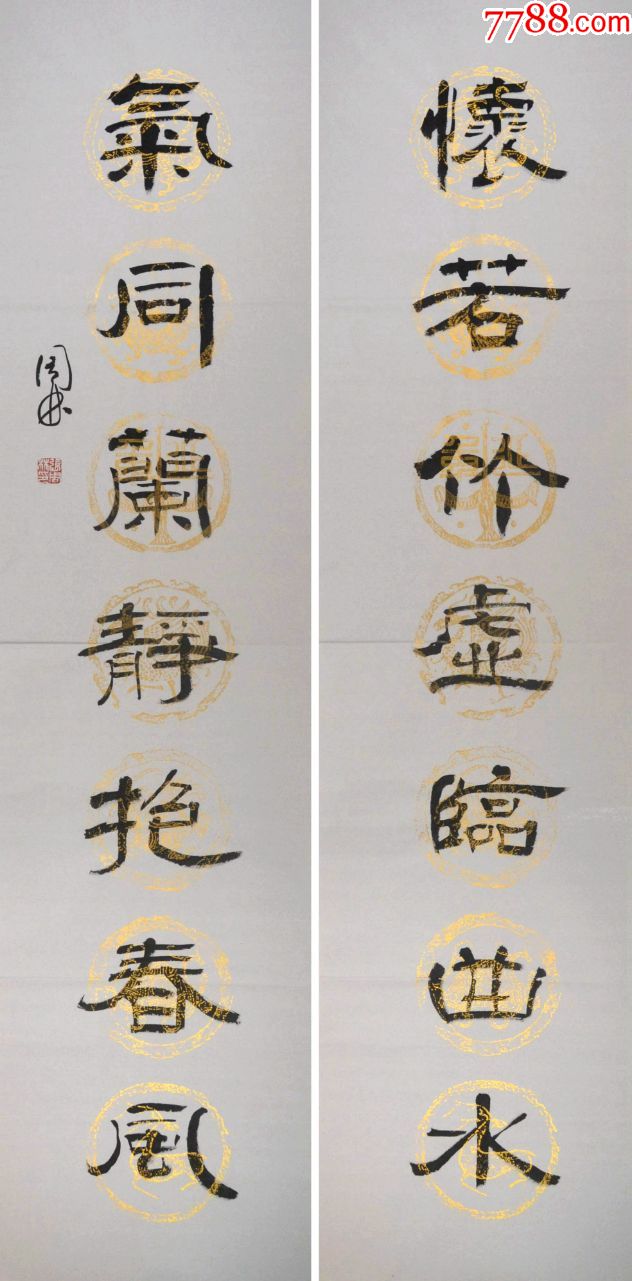 7788.com
懷若竹虛臨曲水
氣同蘭靜抱春風